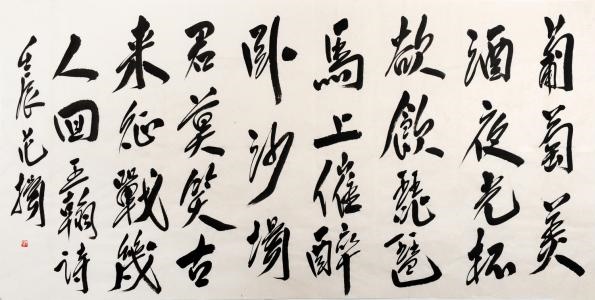 葡萄美
酒夜光杯
欲飲琵琶
馬上催醉
卧沙場
君莫笑古
来征戰幾
人回王翰詩
壬辰范